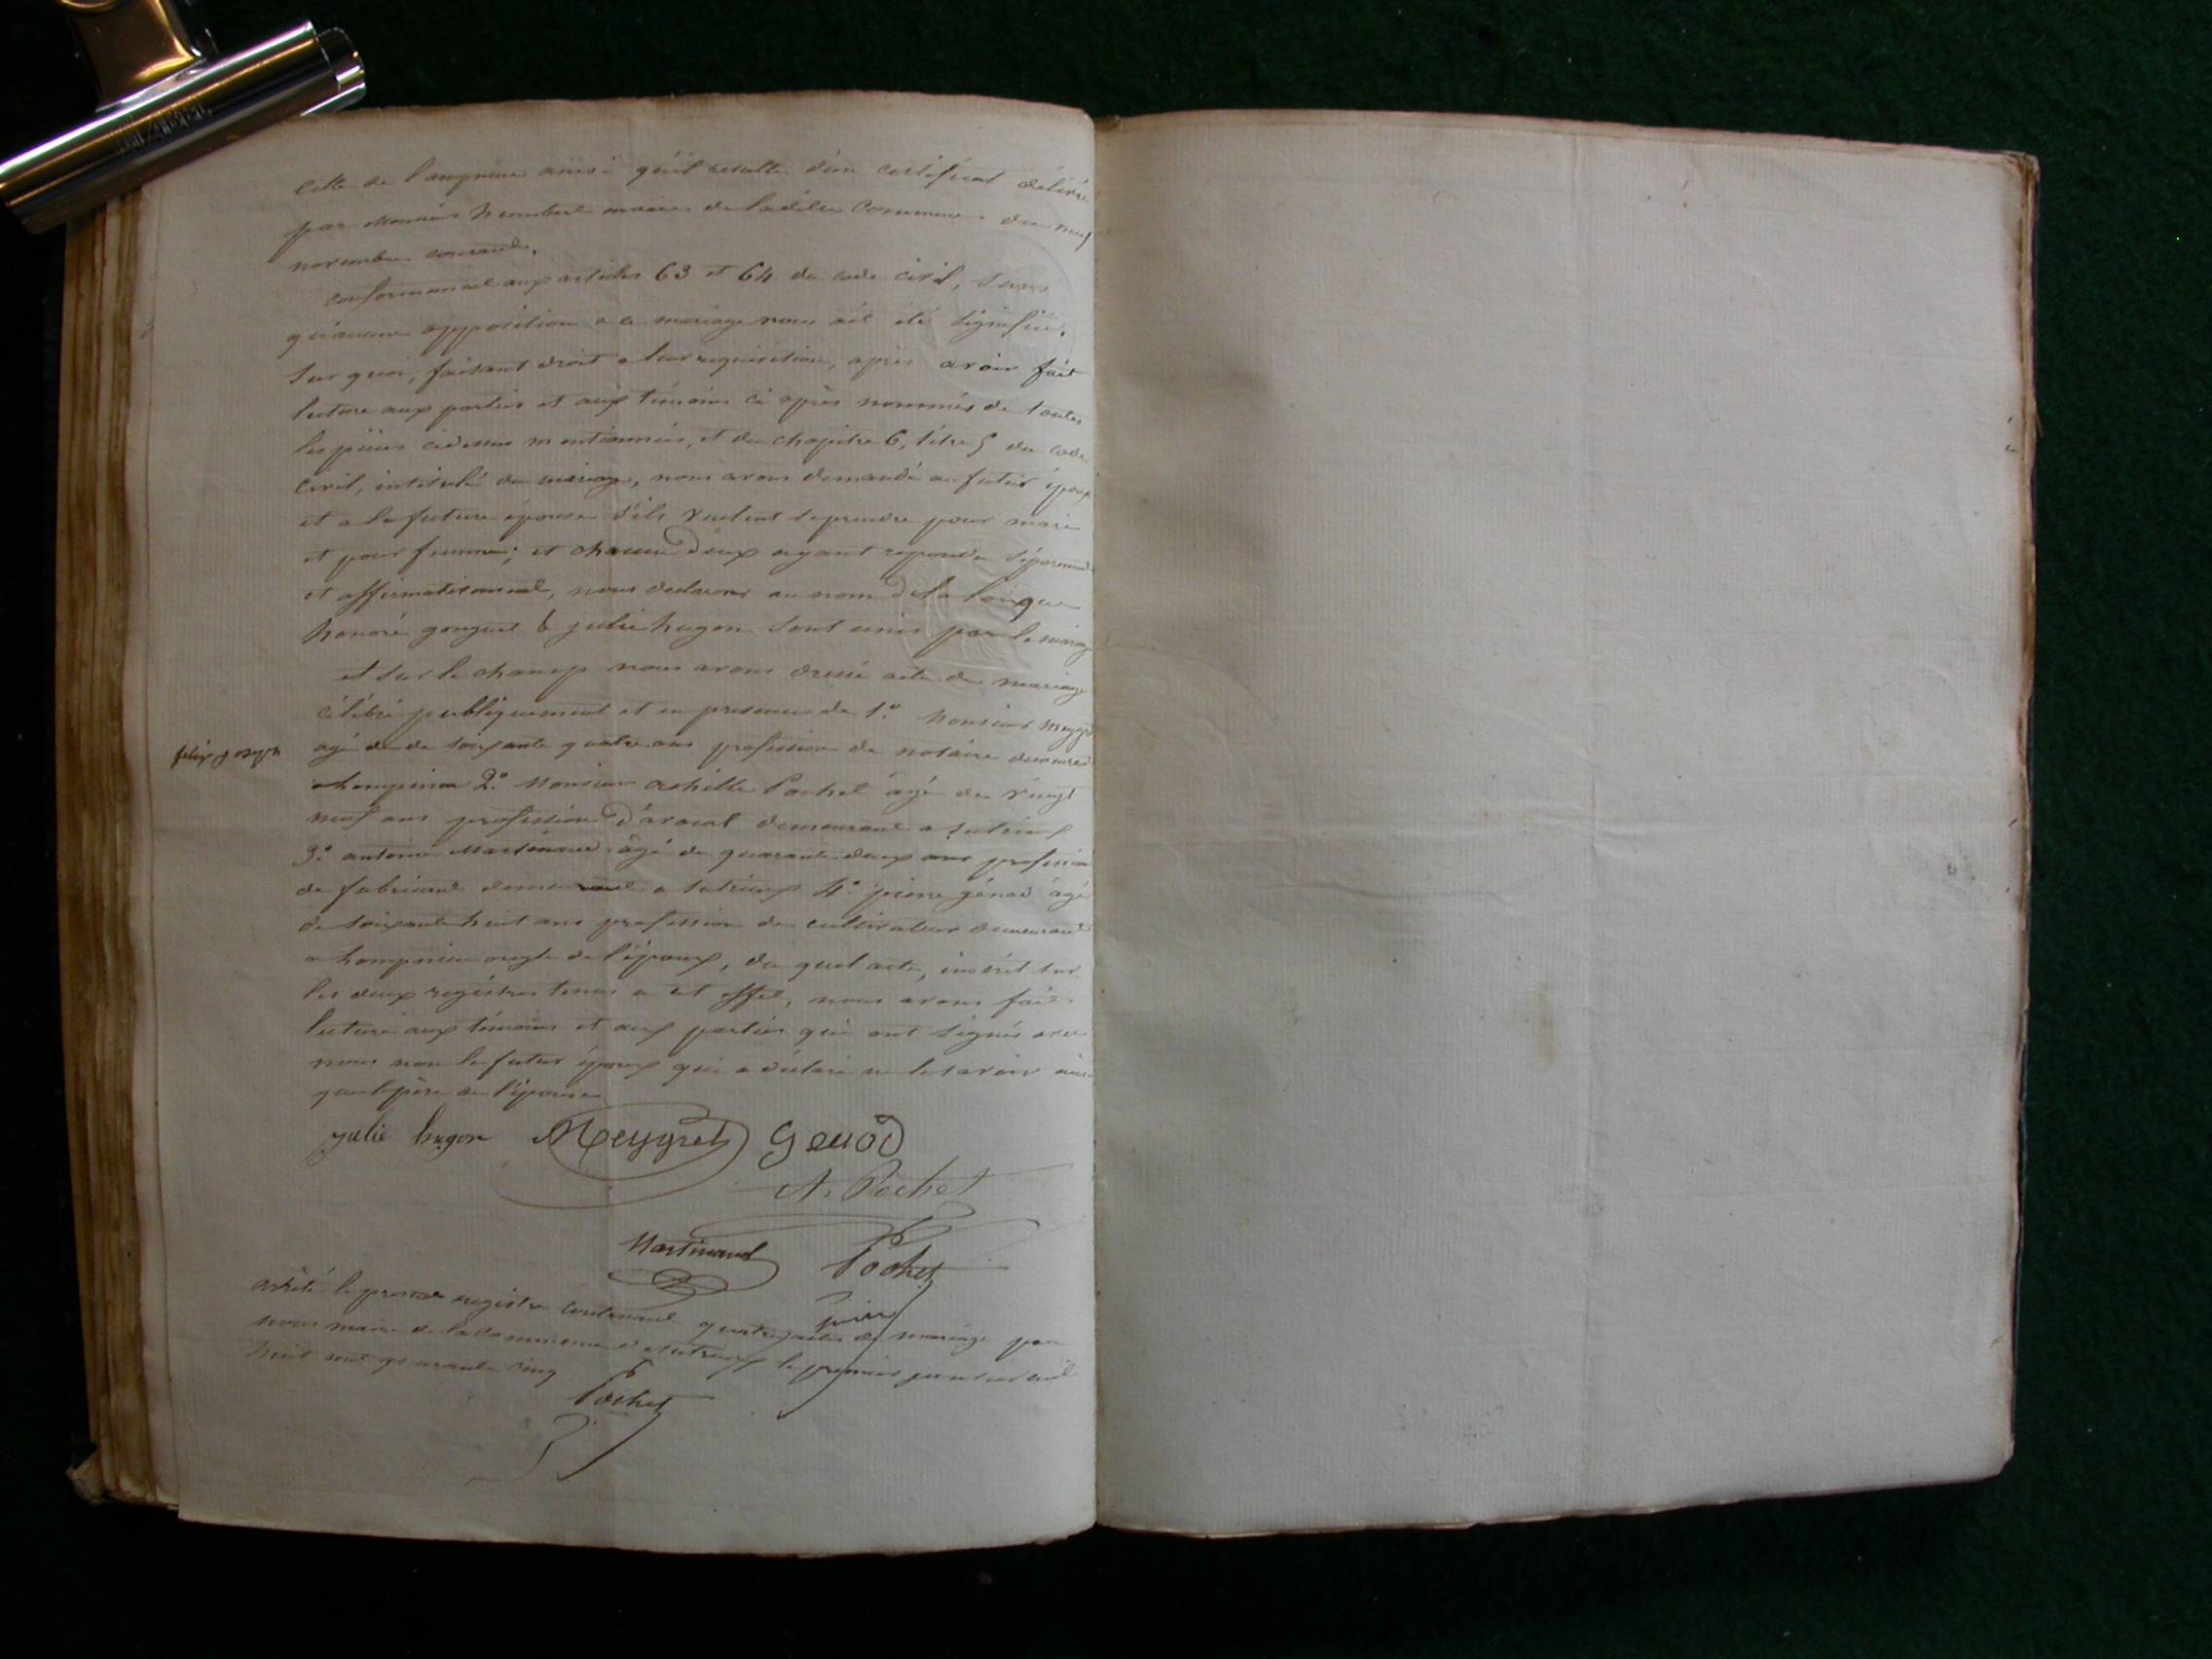 celle de Lompnieu ainsi qu'il resulte d'un certificat délivré
par Monsieur maire de ladite Commune du neuf
novembre courant.
conformement aux articles 63 et 64 du code civil, sans
qu'aucune opposition a ce mariage nous ait été signifiée.
Sur quoi, faisant droit a leur requisition, après avoir fait
lecture aux parties et aux témoins ci après nommés de toutes
les pièces cidessus mentionnées, et du chapitre 6, titre 5 du code
civil, intitulé du mariage, nous avons demandé au futur époux
et a la future épouse s'ils veulent se prendre pour mari
et pour femme; et chacun d'eux ayant repondu séparement
et affirmativement, nous declarons au nom de la loi que
honoré gonguet & julie hugon sont unis par le mariage
et sur le champ nous avons dressé acte de mariage
célébré publiquement et en presence de 1.° Monsieur Meygret
agé de de soixante quatre ans profession de notaire demeurant
a Lompnieu 2.° Monsieur achille Pochet âgé de vingt
neuf ans profession d'avocat demeurant a Sutrieux
3.° antoine Martinand âgé de quarante deux ans profession
de fabricant demeurant a Sutrieux 4.° pierre génod âgé
de soixante huit ans profession de cultivateur demeurant
a Lompnieu oncle de l'époux, du quel acte, inscrit sur
les deux registres tenus a cet effet, nous avons fait
lecture aux témoins et aux parties qui ont signés avec
nous non le futur époux qui a déclaré ne le savoir ainsi
que le père de l'épouse
julie hugon Meygret Genod
A. Pochet
Martinand Pochet
arrêté le present registre contenant quatre actes de mariage par
nous maire de la commune de Sutrieux le premier janvier mil
huit cent quarante cinq
Pochet